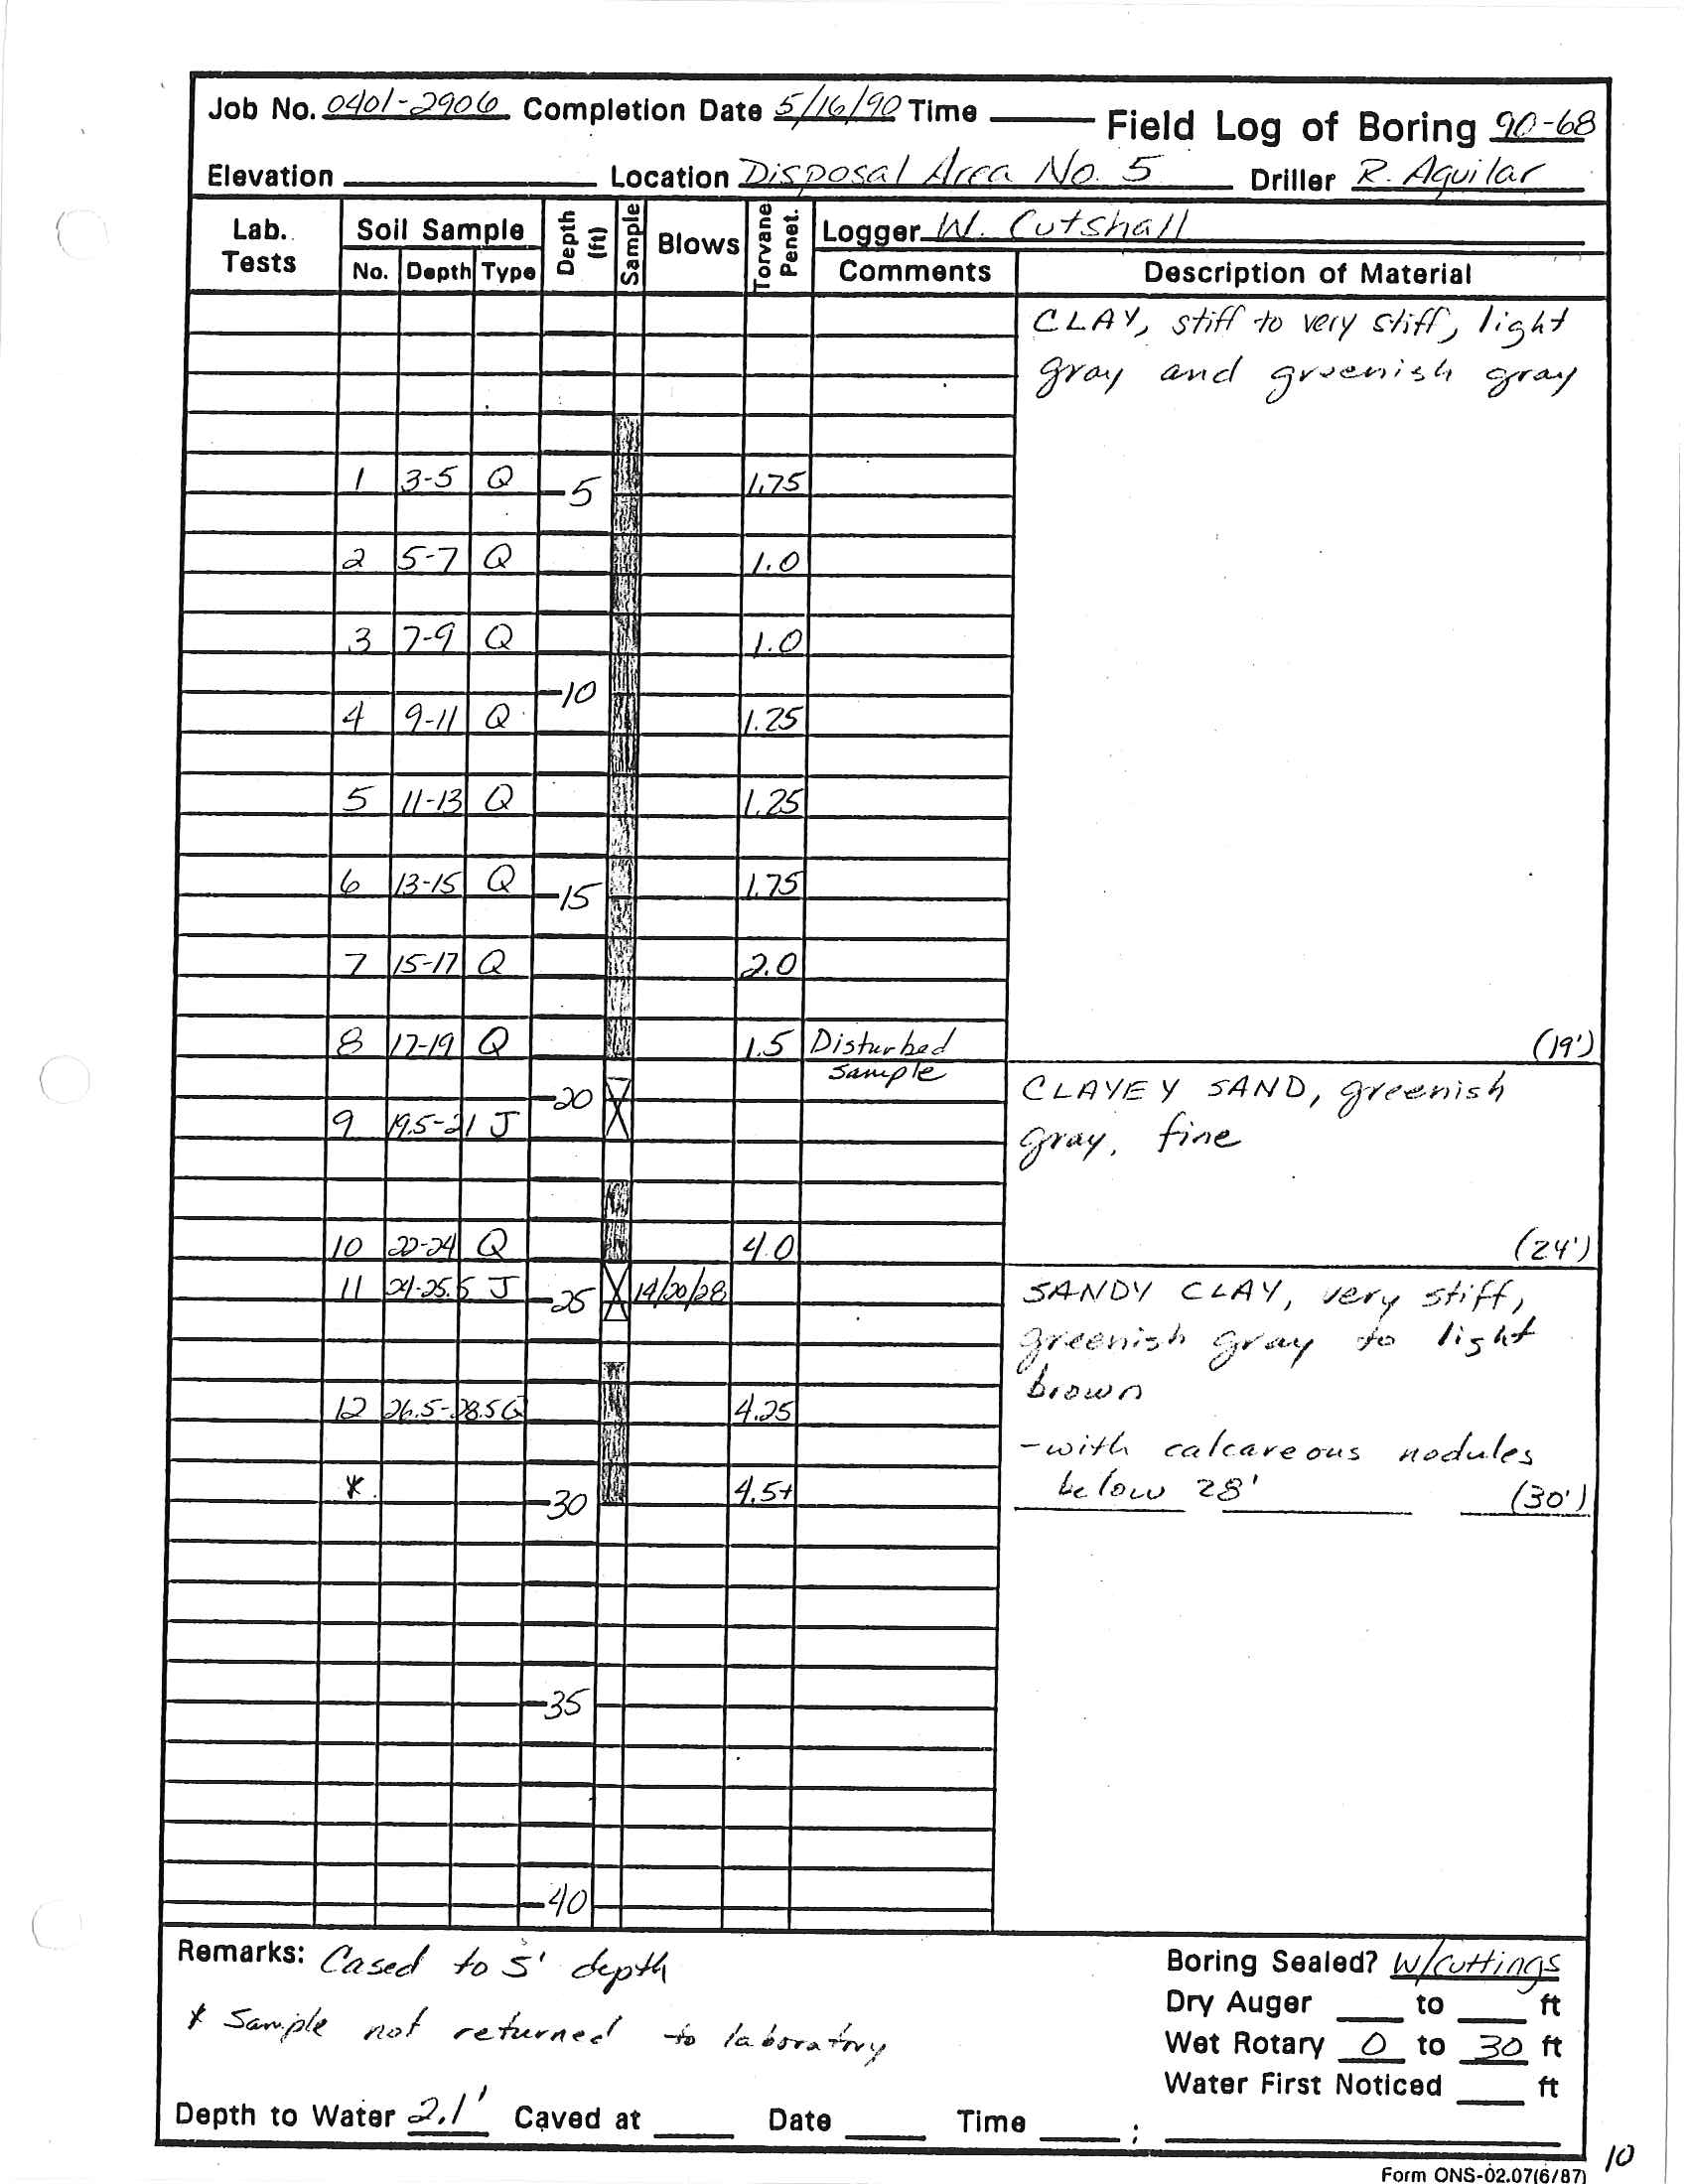 Job No. 0401-2906 Completion Date 5/16/90 Time
Field Log of Boring 90-68
Elevation Location Disposal Area No. 5 Driller R. Aguilar
Lab. Tests Soil Sample Depth (ft) Sample Blows Torvane Penet. Logger W. Cutshall
No. Depth Type Comments Description of Material
CLAY, stiff to very stiff, light
gray and greenish gray
1 3-5 Q 1.75
5
2 5-7 Q 1.0
3 7-9 Q 1.0
10
4 9-11 Q 1.25
5 11-13 Q 1.25
6 13-15 Q 1.75
15
7 15-17 Q 2.0
8 17-19 Q 1.5 Disturbed (19')
sample
CLAYEY SAND, greenish
20
9 19.5-21 J
gray, fine
10 22-24 Q 4.0 (24')
11 24-25.5 J 25 14/20/28 SANDY CLAY, very stiff,
greenish gray to light
brown
12 26.5-28.5 Q 4.25
-with calcareous nodules
* 4.5+ below 28' (30')
30
35
40
Remarks: Cased to 5' depth
* Sample not returned to laboratory
Boring Sealed? w/cuttings
Dry Auger to ft
Wet Rotary 0 to 30 ft
Water First Noticed ft
Depth to Water 2.1' Caved at Date Time ;
10
Form ONS-02.07(6/87)